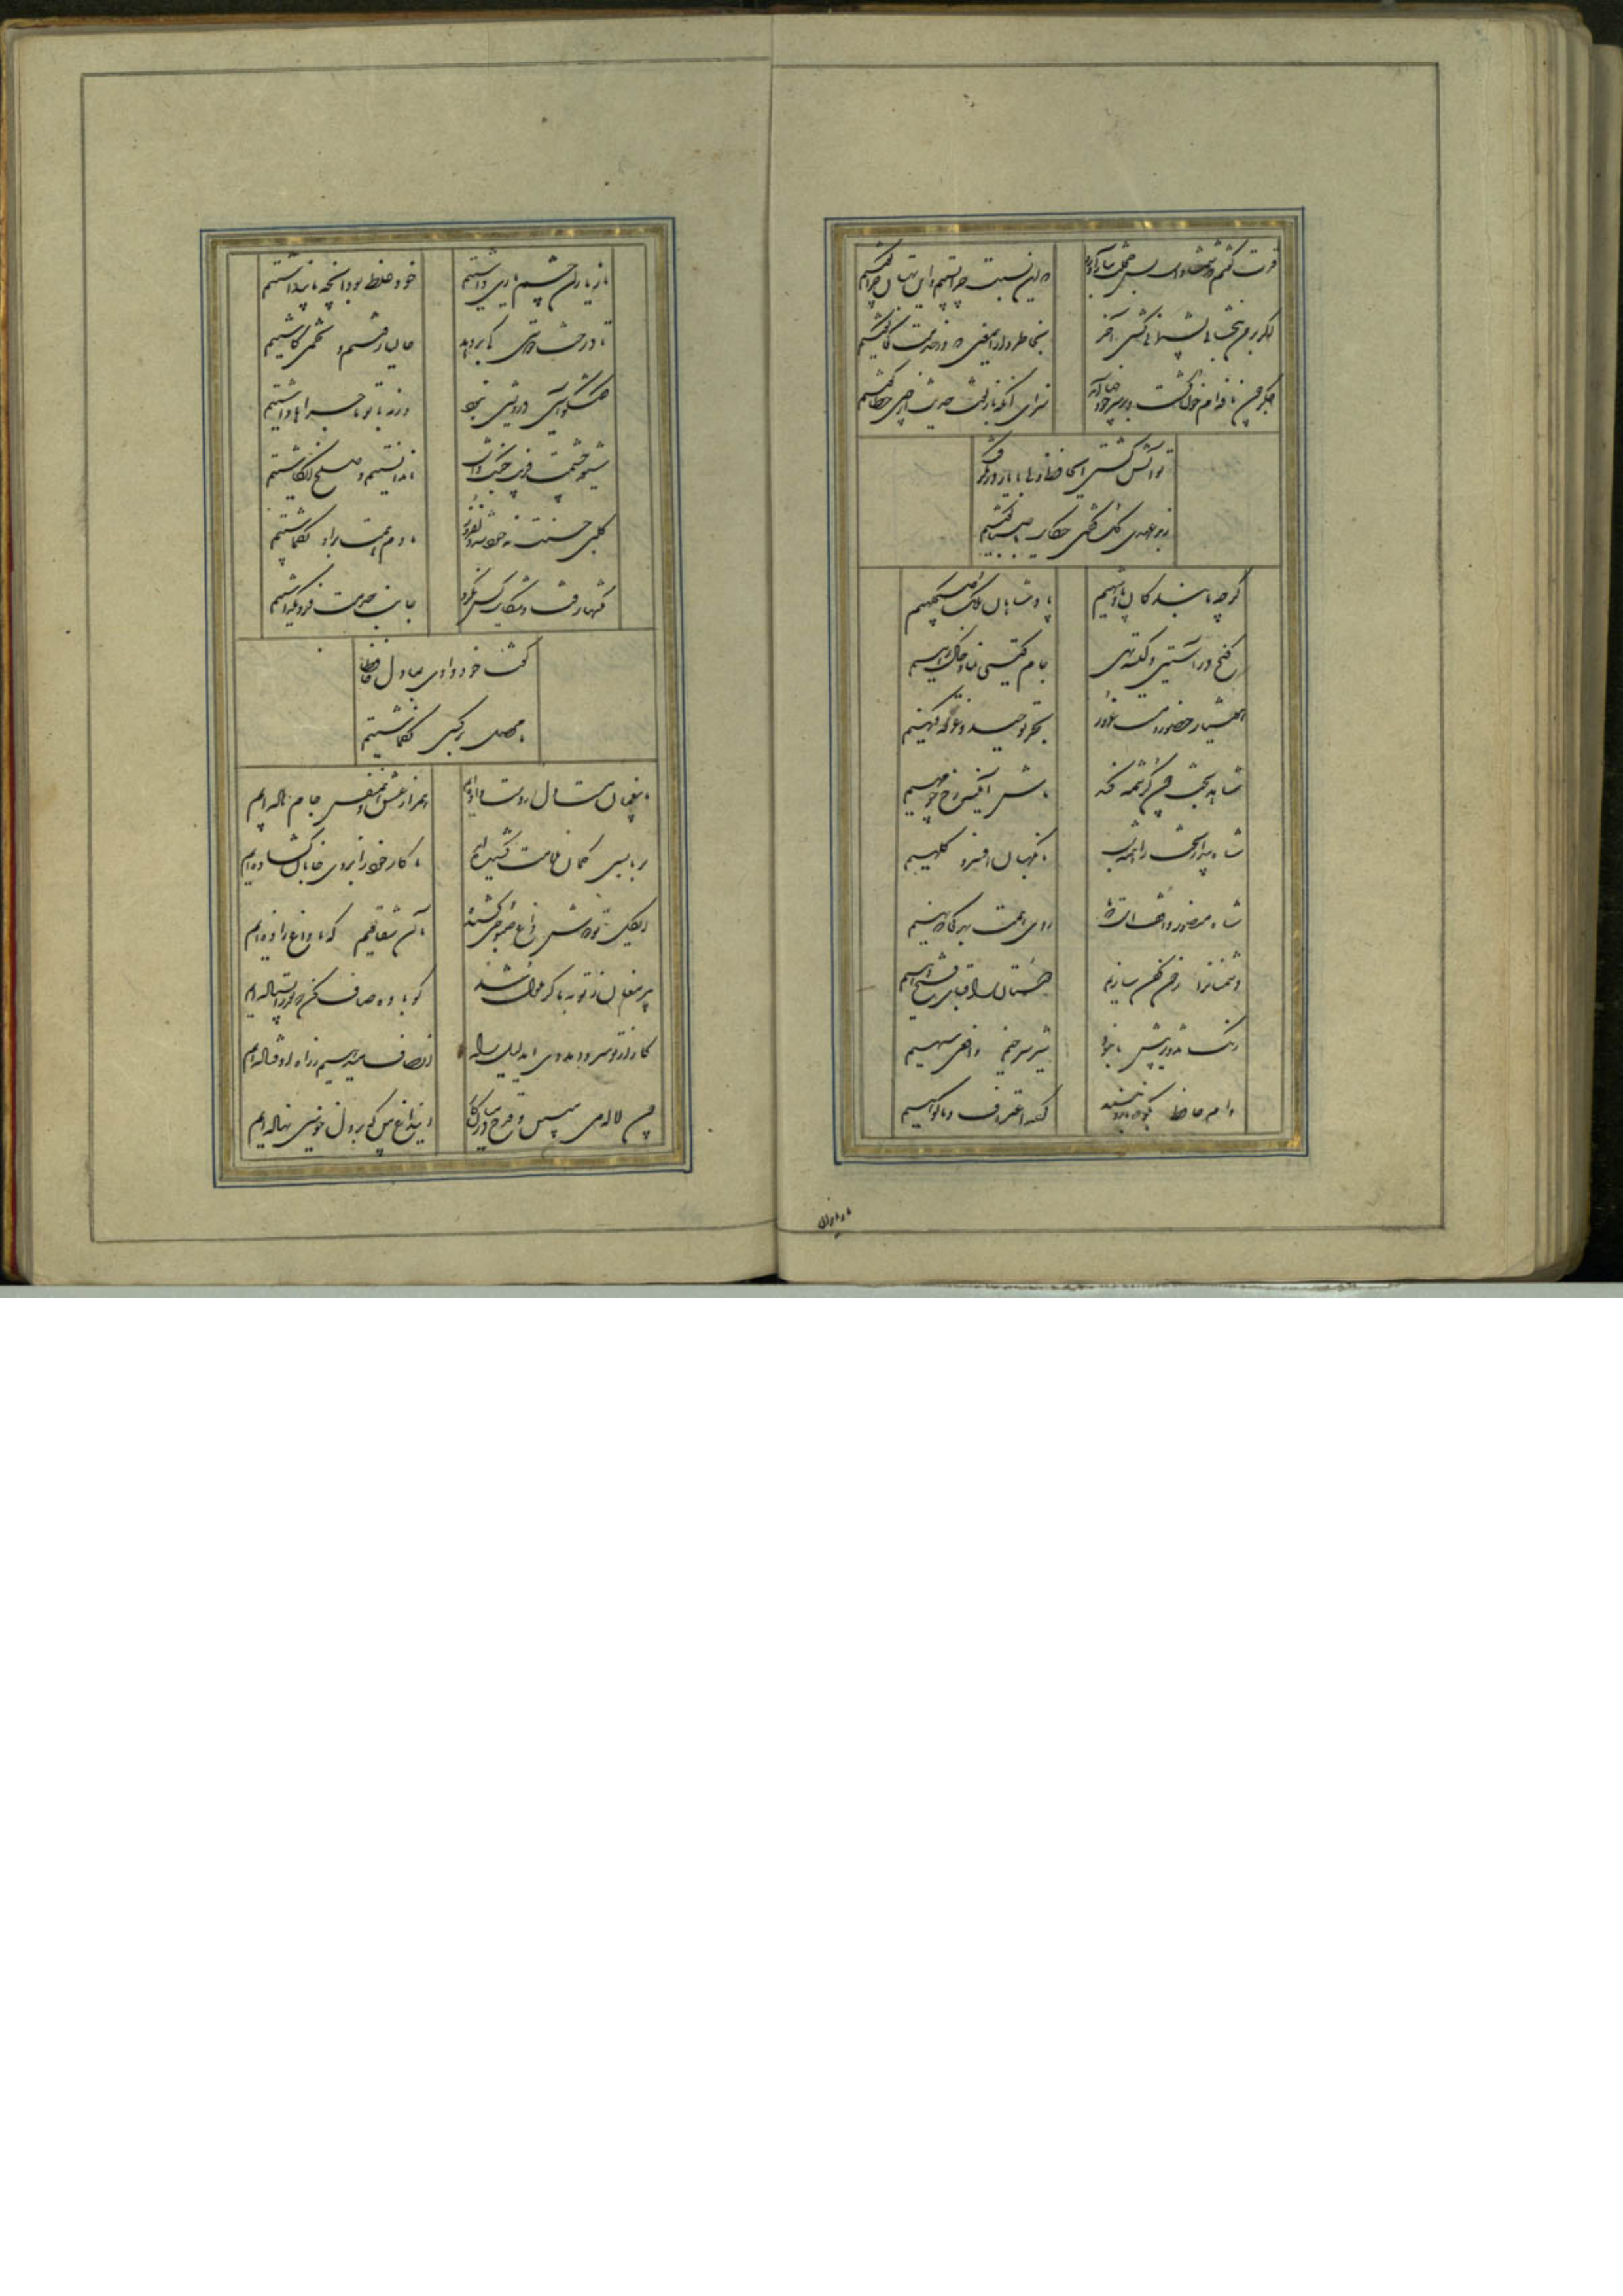 قدت گفتم که شمشادست بس خجلت ببار آورد که این نسبت چرا بستیم و این بهتان چرا گفتیم
اگر بر من نبخشایی پشیمانی کشی آخر بخاطر دار این معنی که در خدمت کجا گفتیم
جگر چون نافه ام خون گشت سزای آنکه با زلفت حدیث از چین خطا گفتیم
تو آتش گشتی ای حافظ ولی با یار در نگرفت
ز بدعهدی گل گویی حکایت با صبا گفتیم
گرچه ما بندگان پادشهیم پادشاهان ملک صبحگهیم
گنج در آستین و کیسه تهی جام گیتی نما و خاک رهیم
هوشیار حضور و مست غرور بحر توحید و غرقه گنهیم
شاهد بخت چون کرشمه کند ماش آیینه رخ چو مهیم
شاه بیدار بخت را همه شب ما نگهبان افسر و کلهیم
شاه منصور واقف است که ما روی همت بهر کجا که نهیم
دشمنانرا ز خون کفن سازیم دوستان را قبای فتح دهیم
رنگ تزویر پیش ما نبود شیر سرخیم و افعی سیهیم
وام حافظ بگو که باز دهند کرده اعتراف و ما گوهیم
ما ز یاران
ما ز یاران چشم یاری داشتیم خود غلط بود آنچه ما پنداشتیم
تا درخت دوستی کی بر دهد حالیا رفتیم و تخمی کاشتیم
گفتگو آیین درویشی نبود ورنه با تو ماجراها داشتیم
شیوه چشمت فریب جنگ داشت ما ندانستیم و صلح انگاشتیم
گلبن حسنت نه خود شد دلفروز ما دم همت برو بگماشتیم
نکتها رفت و شکایت کس نکرد جانب حرمت فرو نگذاشتیم
گفت خود دادی بما دل حافظا
ما محصل بر کسی نگماشتیم
ما بیغمان مست دل از دست داده ایم همراز عشق و همنفس جام باده ایم
بر ما بسی کمان ملامت کشیده اند تا کار خود ز ابروی جانان گشاده ایم
ای گل تو دوش داغ صبوحی کشیده ما آن شقایقیم که با داغ زاده ایم
پیر مغان ز توبه ما گر ملول شد گو باده صاف کن که بعذر ایستاده ایم
کار از تو میرود مددی ای دلیل راه انصاف میدهیم ز راه اوفتاده ایم
چون لاله می مبین و قدح در میان کار این داغ بین که بر دل خونین نهاده ایم